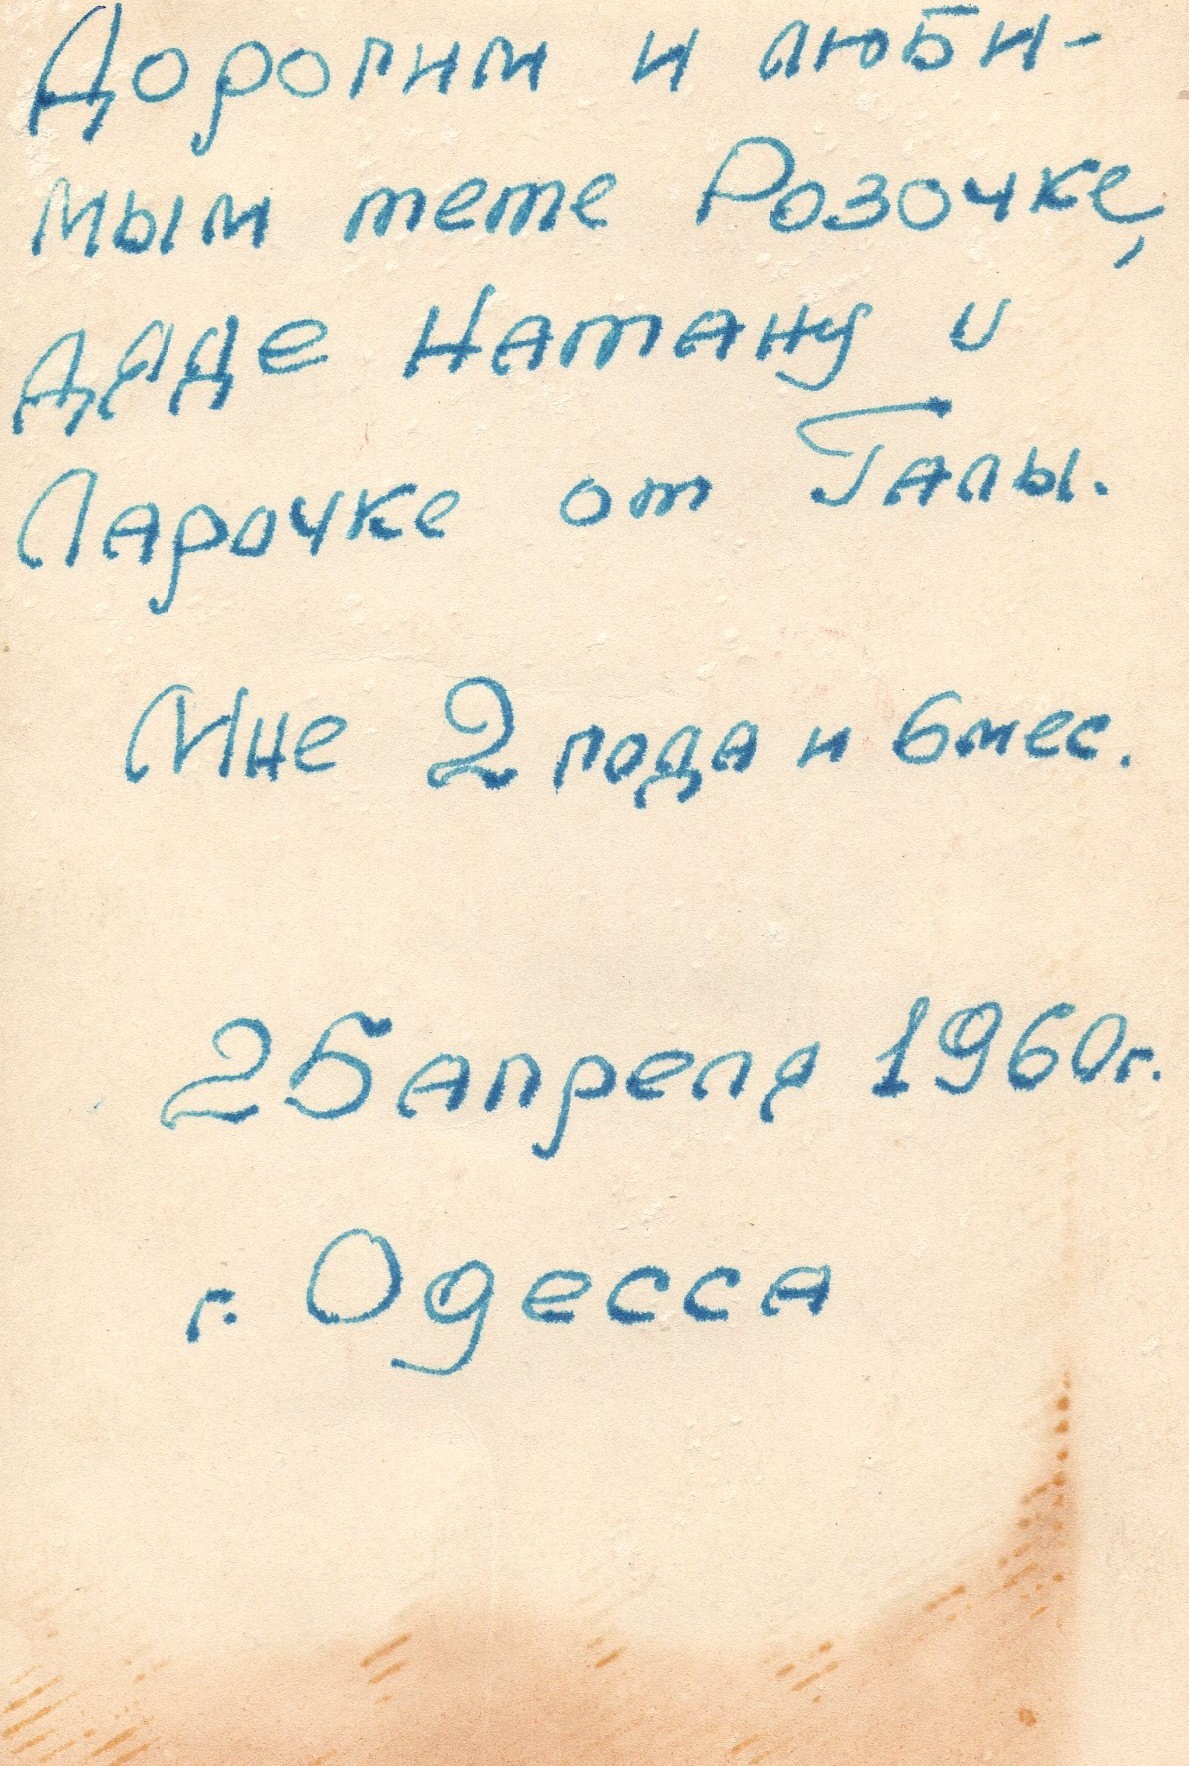 Дорогим и люби-
мым тете Розочке,
дяде Натану и
Ларочке от Галы.
Мне 2 года и 6 мес.
25 апреля 1960 г.
г. Одесса